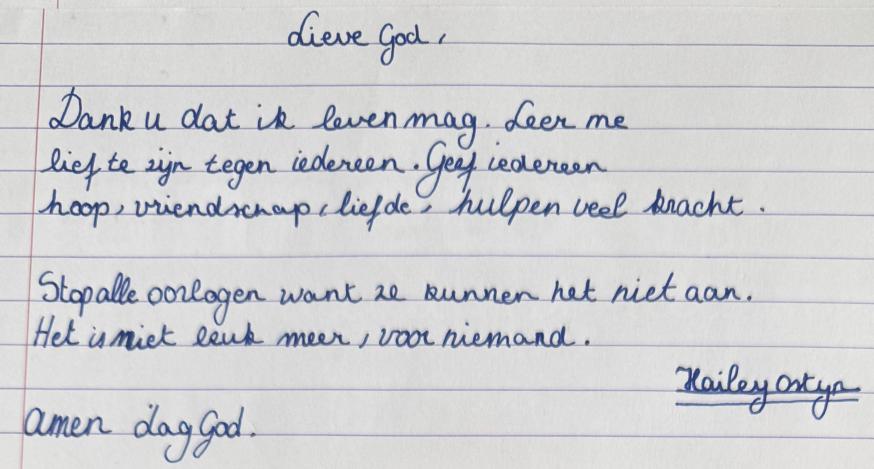 Lieve God,
Dank u dat ik leven mag. Leer me
lief te zijn tegen iedereen. Geef iedereen
hoop, vriendschap, liefde, hulp en veel kracht.
Stop alle oorlogen want ze kunnen het niet aan.
Het is niet leuk meer, voor niemand.
Hailey Ostyn
amen dag God.